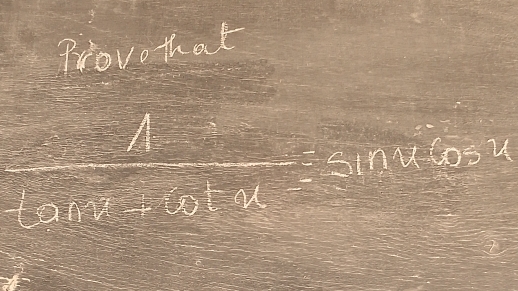 Prove that
1
tanx + cot x = sinx cos x